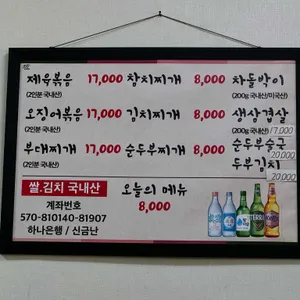 제육볶음 17,000 참치찌개 8,000 차돌박이
(2인분 국내산) (200g 국내산/미국산)
오징어볶음 17,000 김치찌개 8,000 생삼겹살
(2인분 국내산) (200g 국내산) 17,000
부대찌개 17,000 순두부찌개 8,000 순두부술국
(2인분 국내산) 20,000
두부김치
20,000
쌀.김치 국내산
계좌번호
570-810140-81907
하나은행 / 신금난
오늘의 메뉴
8,000